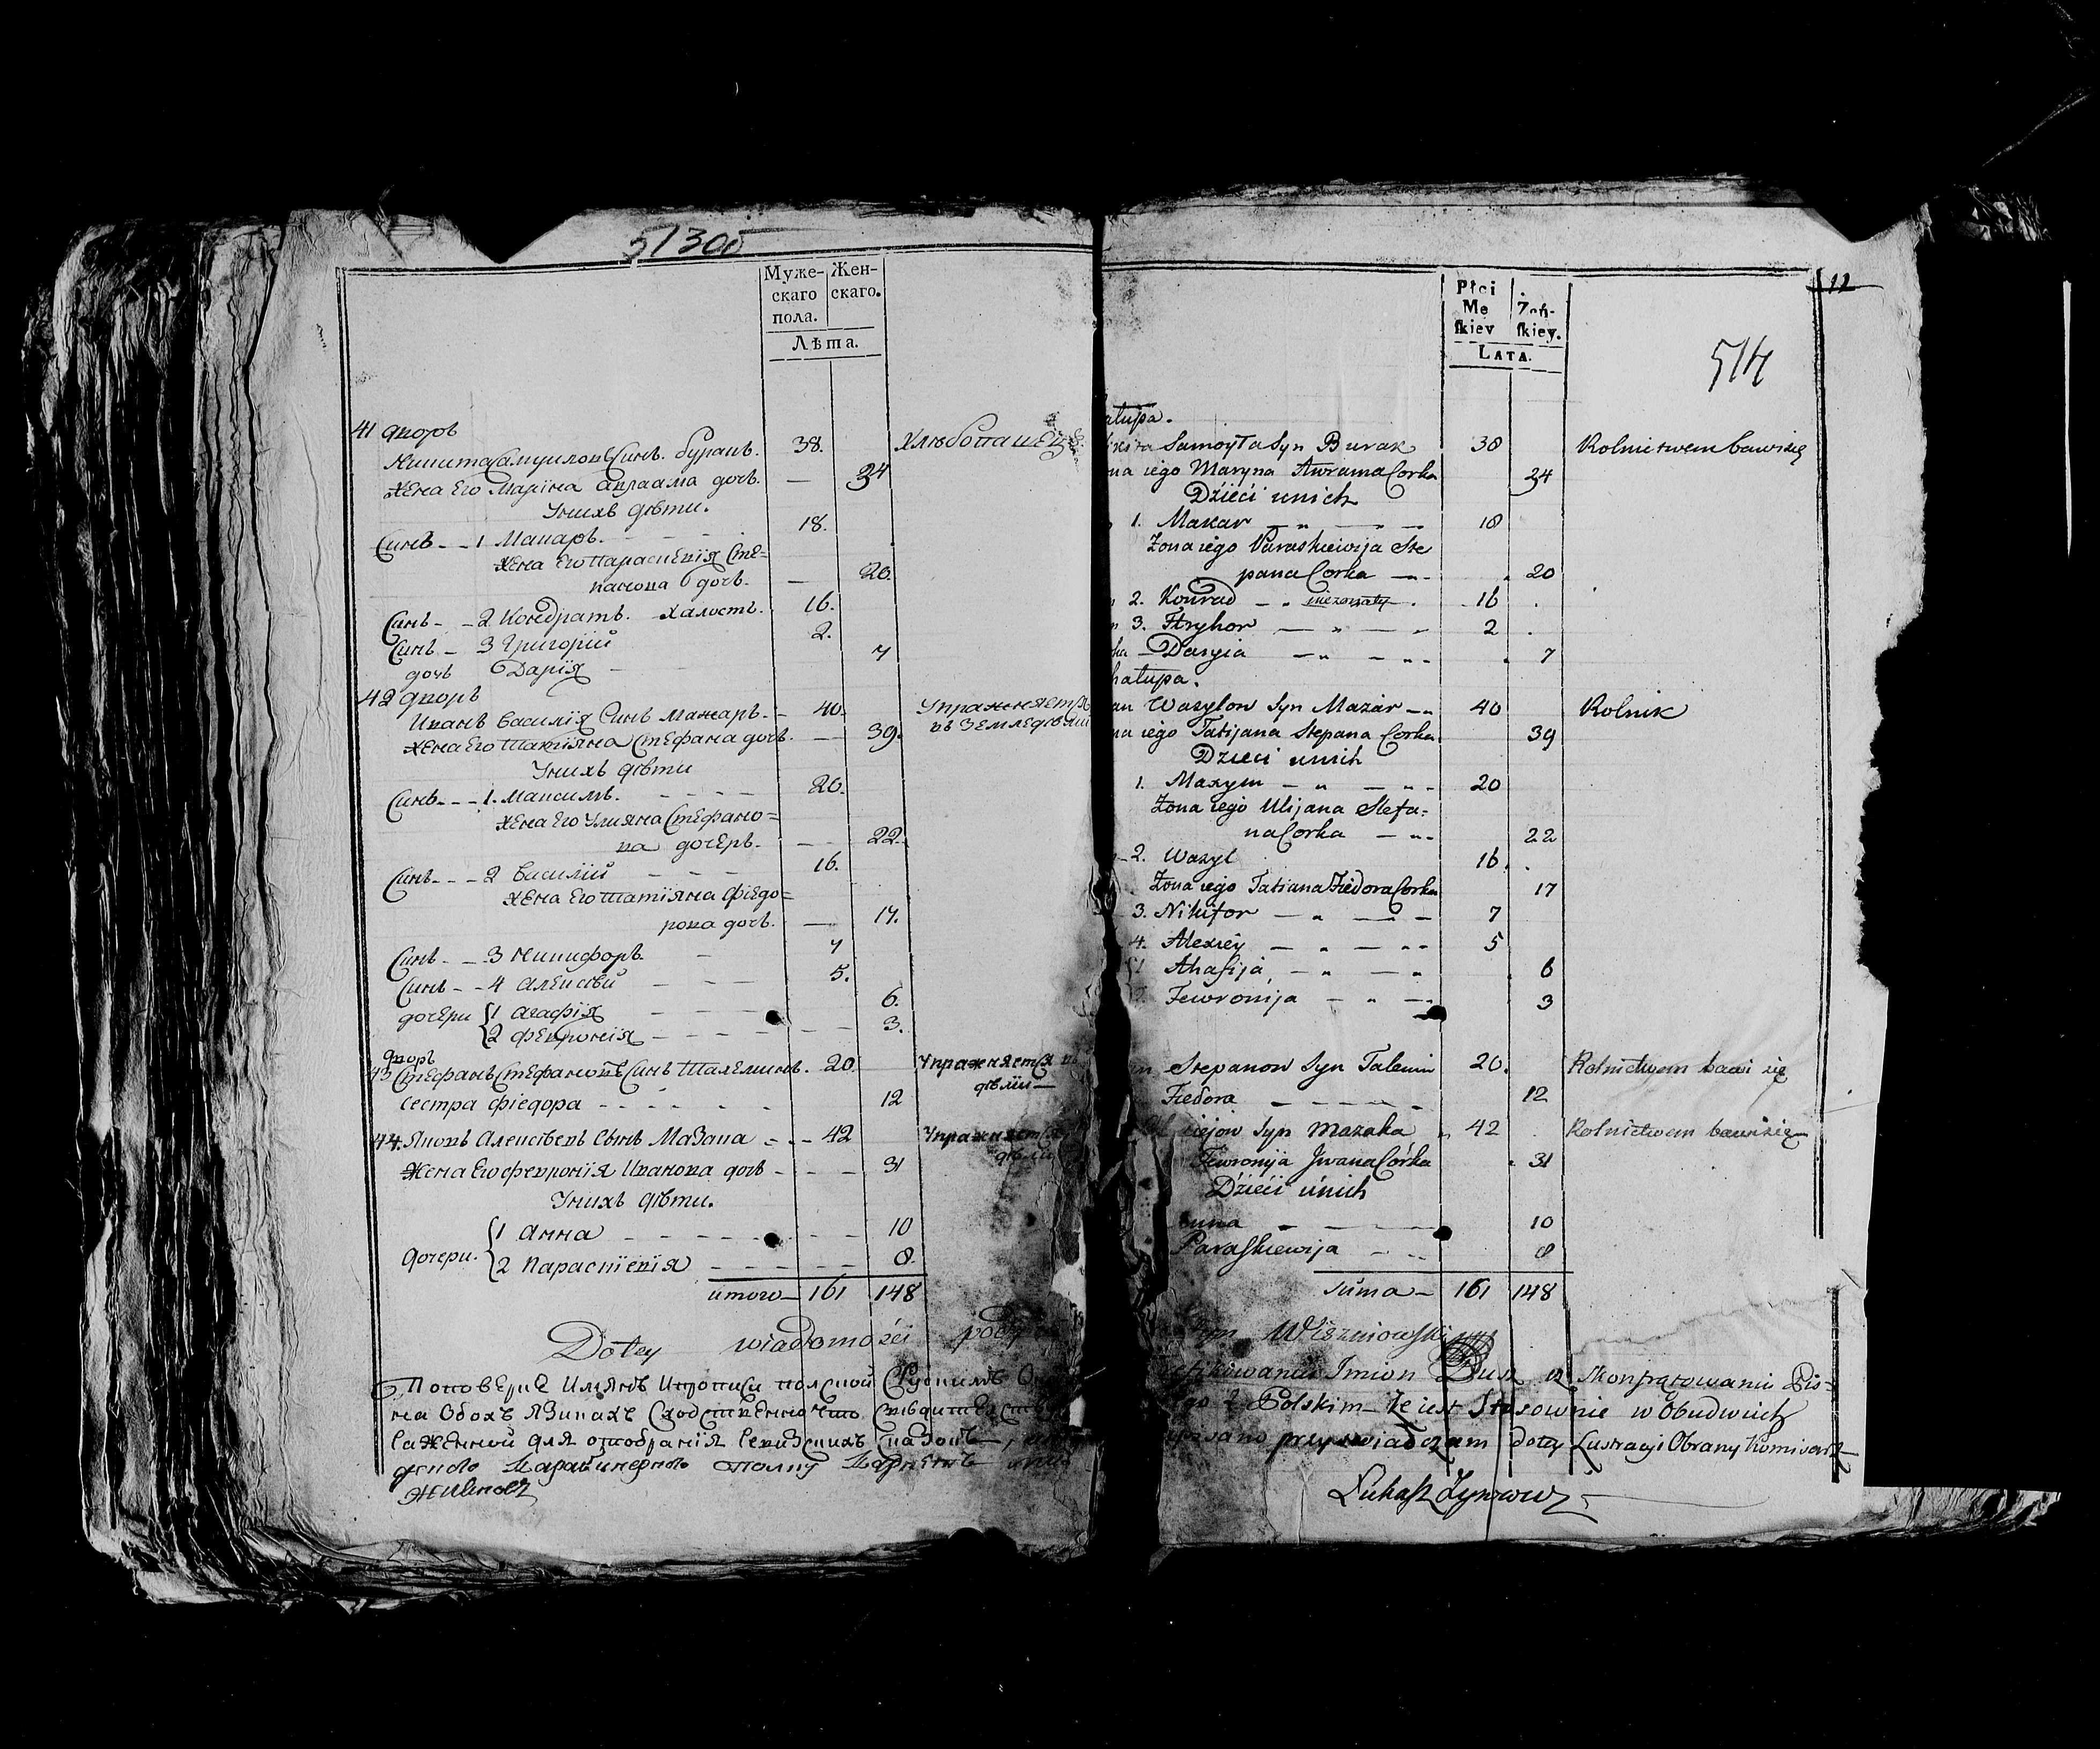 513об
Муже-
скаго
пола.
Жен-
скаго.
Лѣта.
41 дворъ
Никита Самуиловъ Синъ. буракъ. 38. хлѣбопашецъ
жена Его Марiна авраама дочь. — 34
Унихъ дѣти.
Синъ - - 1 Макаръ. 18.
жена Его Параскевiя Сте=
панова дочъ. — 20.
Синъ - - 2 Кондратъ. халостъ. 16.
Синъ - 3 Григорiй 2.
дочь Дарiя 7
42 дворъ
Иванъ Василiя Синъ Мажаръ. - 40. Упражняетса
жена Его Татiяна Стефана дочь. — 39. въ Земледѣлiи
Унихъ дѣти
Синъ - - - 1. Максимъ. 20.
жена Его Улияна Стефано=
ва дочерь. - - 22.
Синъ - - - 2 Василiй 16.
жена Его татiяна фiедо=
рова дочь. — 17.
Синъ - - 3 Никифоръ. 7
Синъ - - 4 Алексѣй 5.
дочери 1 агафiя 6.
2 февронiя 3.
дворъ
43 Стефанъ Стефановъ Синъ Талеминъ. 20. Упражняется въ
дѣлiи —
сестра фiедора - - - - - - 12
44. Яковъ Алексѣевъ Сынъ Мазака - - - 42 Упражняется
жена Его февронiя Иванова дочь - - - - 31
Унихъ дѣти.
дочери. 1 Анна 10
2 Параскiевiя 8.
итого — 161 148
Dotey wiadomości
Поповерке Имянъ
на Обохъ Язикахъ Сходственно что
для отобранiя
12
514
Płci
Me
ſkiey
Zeń-
ſkiey.
LATA.
atupa.
Samoyła Syn Burak 38 Rolnictwem bawisię
na iego Maryna Awrama Corka 34
Dźieći unich
1. Makar 18
Zona iego Paraskiewija Ste
pana Corka 20
2. Konrad niezonaty 16
3. Hryhor 2
Daryia 7
hatupa.
an Wasylow Syn Mazar 40 Rolnik
na iego Tatijana Stepana Corka 39
Dzieci unich
1. Maxym 20
Zona iego Ulijana Stefa-
na Corka 22
2. Wasyl 16.
Zona iego Tatiana Fiedora Corka 17
3. Nikifor 7
4. Alexiey 5
1 Ahafija 6
2. Fewronija 3
Stepanow Syn Talemin 20. Rolnictwem bawi się
Fiedora 12
iejow Syn Mazaka 42 Rolnictwem bawisię
Fewronija Jwana Córka 31
Dźieći únich
anna 10
Paraſkiewija 8
suma — 161 148
Syn Wiszniowſki
Imion Dusz
Polskim że iest Stosownie w Obudwuch
przyswiadczam dotey Lustracyi Obrany Komisarz
Łukaſz